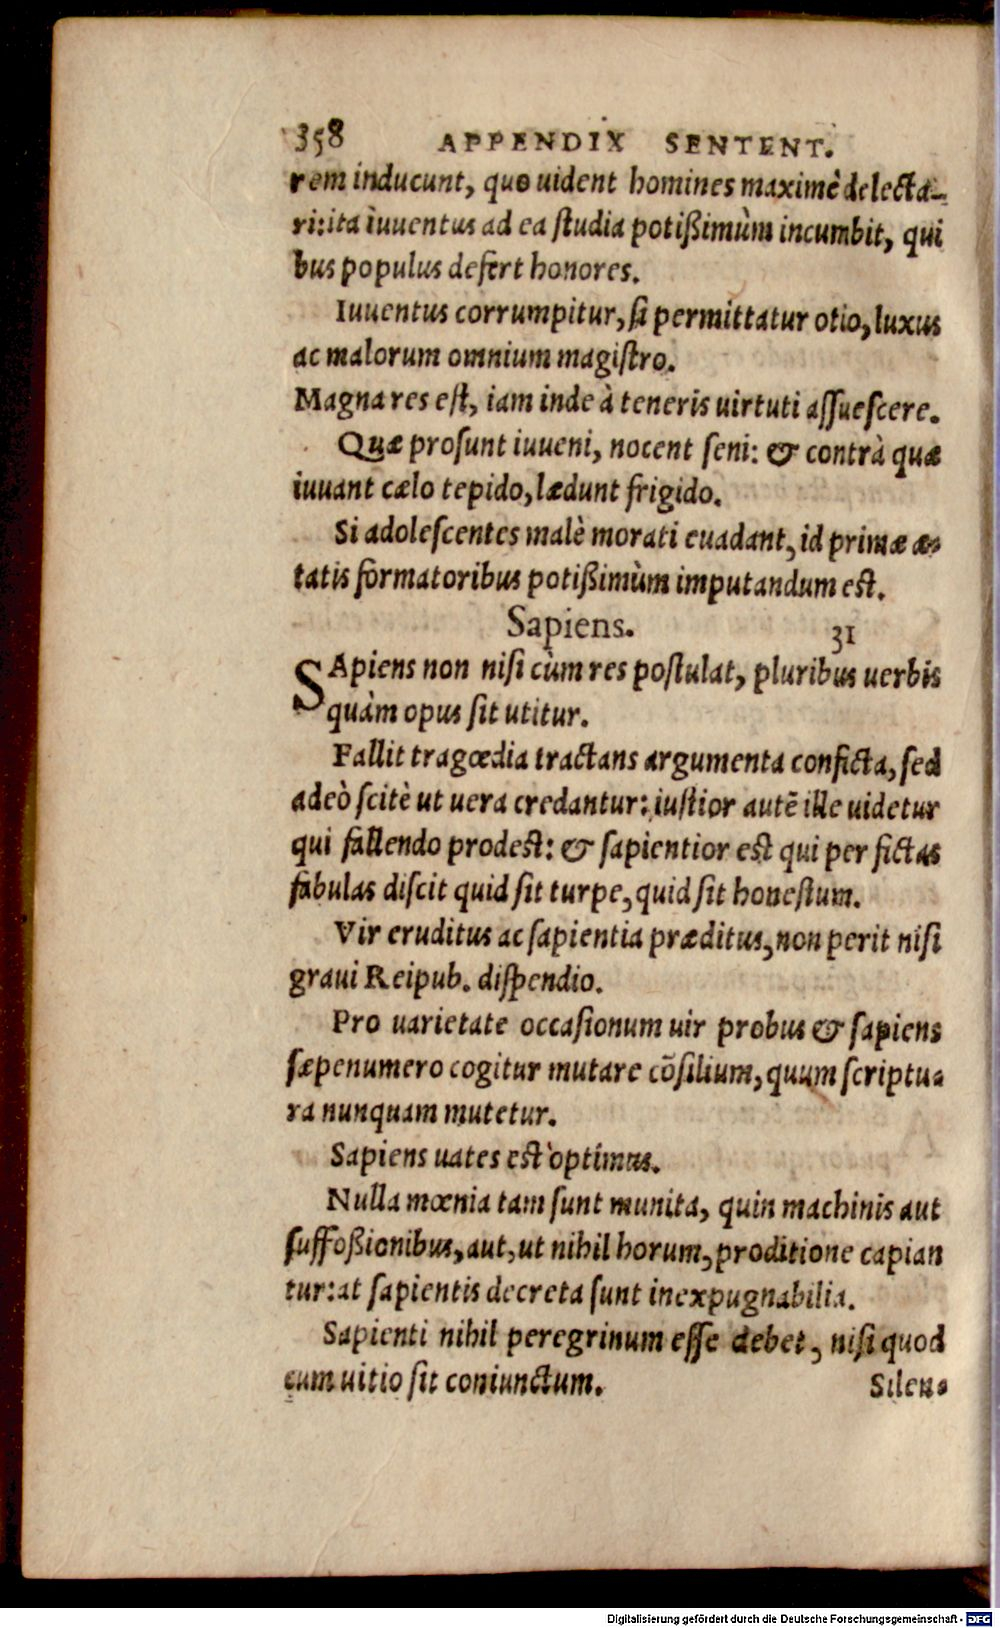 358 APPENDIX SENTENT.
rem inducunt, quo uident homines maximè delecta-
ri: ita iuuentus ad ea studia potißimùm incumbit, qui
bus populus defert honores.
Iuuentus corrumpitur, si permittatur otio, luxus
ac malorum omnium magistro.
Magna res est, iam inde à teneris uirtuti assuescere.
Quæ prosunt iuueni, nocent seni: & contrà quæ
iuuant cælo tepido, lædunt frigido.
Si adolescentes malè morati euadant, id primæ æ-
tatis formatoribus potißimùm imputandum est.
Sapiens. 31
SApiens non nisi cùm res postulat, pluribus uerbis
quàm opus sit utitur.
Fallit tragœdia tractans argumenta conficta, sed
adeò scitè ut uera credantur: iustior autē ille uidetur
qui fallendo prodest: & sapientior est qui per fictas
fabulas discit quid sit turpe, quid sit honestum.
Vir eruditus ac sapientia præditus, non perit nisi
graui Reipub. dispendio.
Pro uarietate occasionum uir probus & sapiens
sæpenumero cogitur mutare cōsilium, quum scriptu-
ra nunquam mutetur.
Sapiens uates est optimus.
Nulla mœnia tam sunt munita, quin machinis aut
suffoßionibus, aut, ut nihil horum, proditione capian
tur: at sapientis decreta sunt inexpugnabilia.
Sapienti nihil peregrinum esse debet, nisi quod
cum uitio sit coniunctum.
Silen-
Digitalisierung gefördert durch die Deutsche Forschungsgemeinschaft - DFG